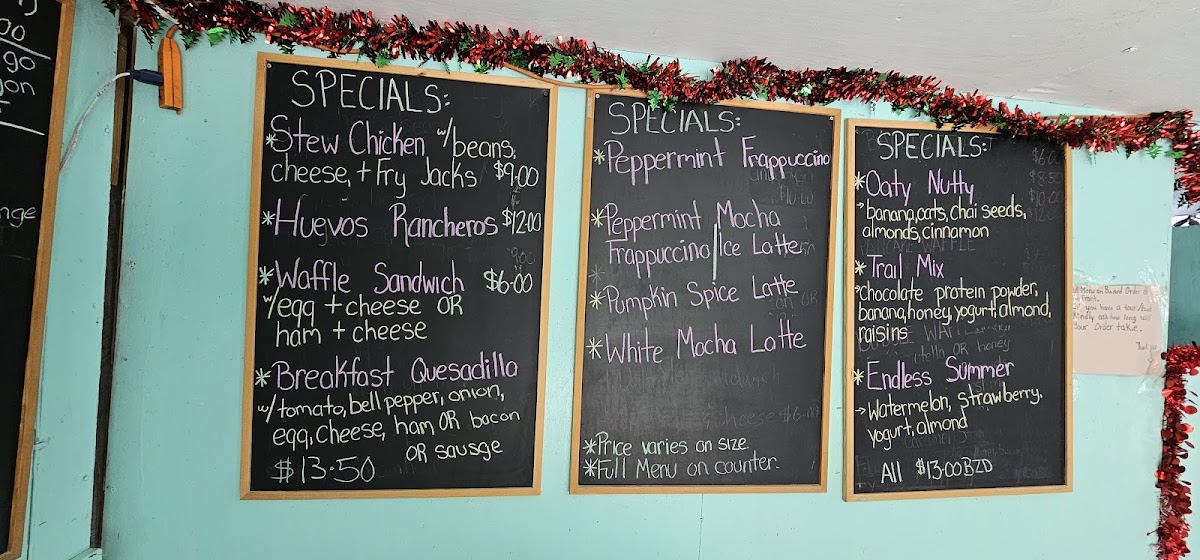 go
gon
nge
SPECIALS:
*Stew Chicken w/beans,
cheese, + Fry Jacks $9.00
*Huevos Rancheros $12.00
*Waffle Sandwich $6.00
w/egg + cheese OR
ham + cheese
*Breakfast Quesadilla
w/tomato, bell pepper, onion,
egg, cheese, ham OR bacon
OR sausge
$13.50
SPECIALS:
*Peppermint Frappuccino
*Peppermint Mocha
Frappuccino|Ice Latte
*Pumpkin Spice Latte
*White Mocha Latte
*Price varies on size
*Full Menu on counter
SPECIALS:
*Oaty Nutty
→banana, oats, chai seeds,
almonds, cinnamon
*Trail Mix
→chocolate protein powder,
banana, honey, yogurt, almond,
raisins
*Endless Summer
→Watermelon, strawberry,
yogurt, almond
All $13.00 BZD
Menu on Board Order
front.
if you have a tour/
Kindly ask how long will
your order take.
Thank you